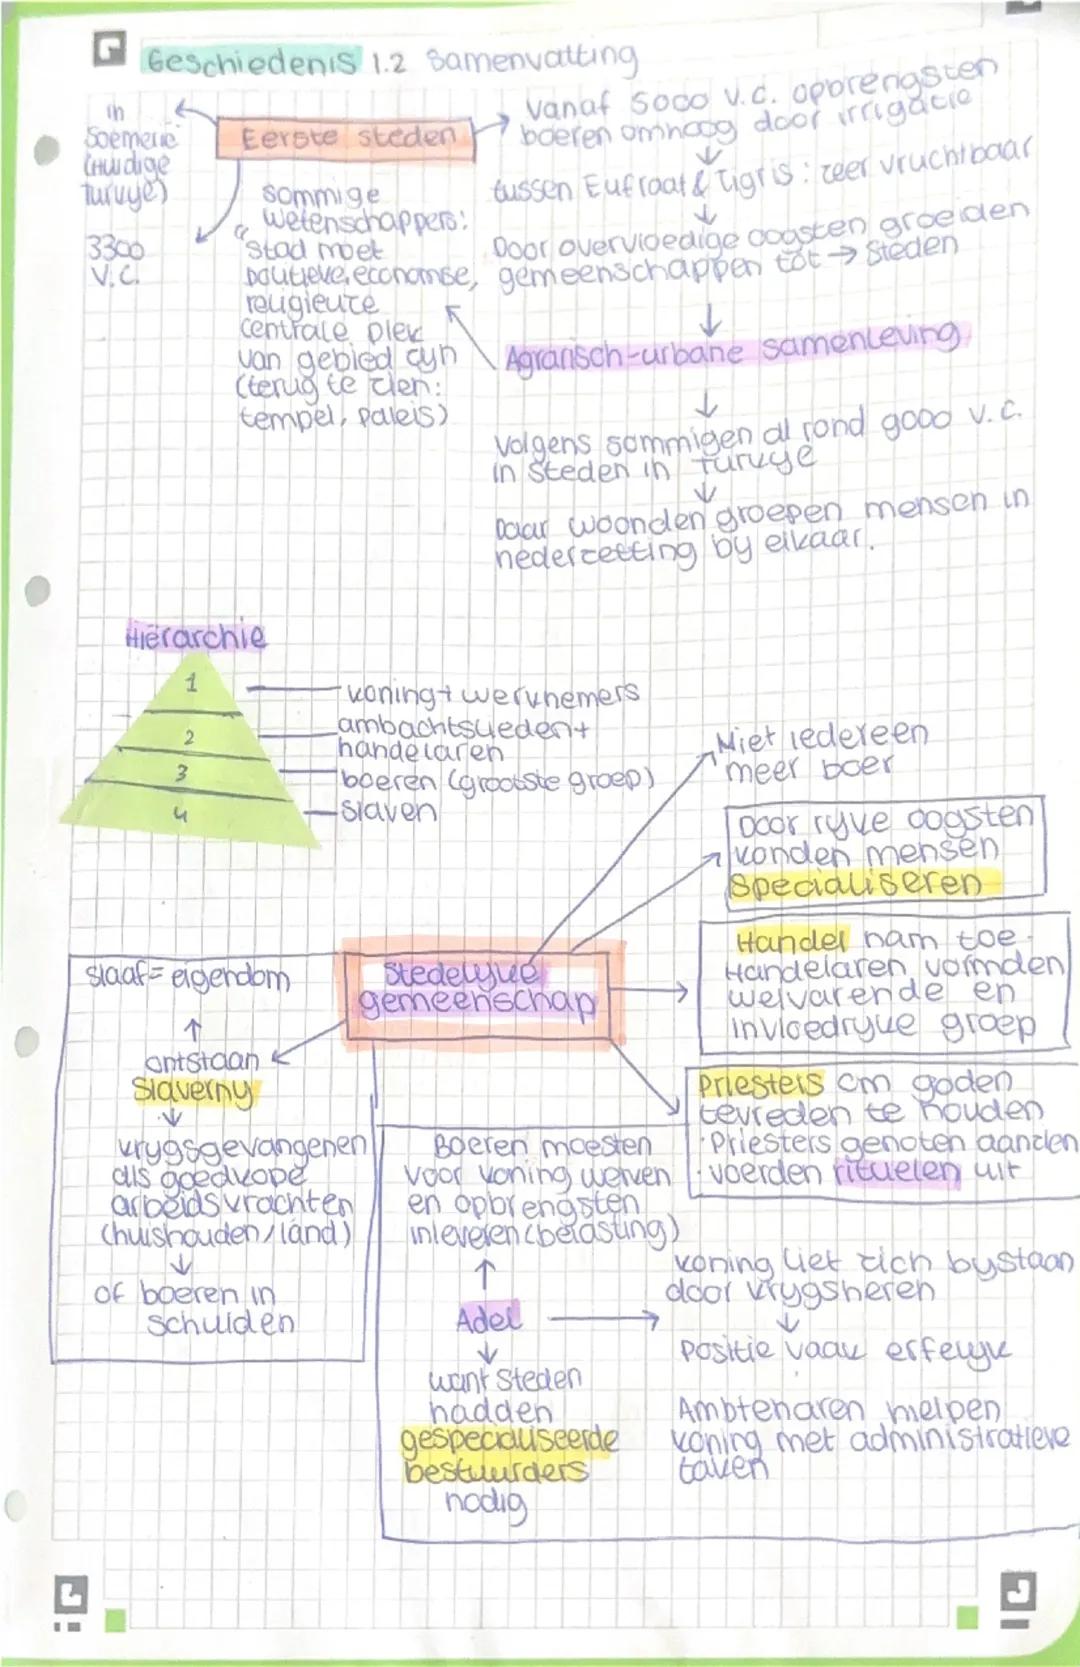 Geschiedenis 1.2 Samenvatting
in
Soemerië
(Huidige
Turkije)
3300
V.C.
Eerste steden
sommige
wetenschappers:
"Stad moet
politieke, economise,
religieuze
centrale plek
van gebied zijn
(terug te zien:
tempel, paleis)
Vanaf 5000 v.c. opbrengsten
boeren omhoog door irrigatie
tussen Eufraat & Tigris: zeer vruchtbaar
Door overvloedige oogsten groeiden
gemeenschappen tot → Steden
Agrarisch-urbane samenleving
Volgens sommigen al rond 9000 v.c.
in steden in Turkije
Daar woonden groepen mensen in
nederzetting bij elkaar.
Hiërarchie
1
2
3
4
koning + werknemers
ambachtslieden +
handelaren
boeren (grootste groep)
slaven
Niet iedereen
meer boer
Door rijke oogsten
konden mensen
Specialiseren
Handel nam toe.
Handelaren vormden
welvarende en
invloedrijke groep
Stedelijke
gemeenschap
Priesters om goden
tevreden te houden
·Priesters genoten aanzien
·voerden rituelen uit
slaaf = eigendom
ontstaan
Slavernij
krijgsgevangenen
als goedkope
arbeidskrachten
(huishouden/land)
of boeren in
schulden
Boeren moesten
voor koning werken
en opbrengsten
inleveren (belasting)
Adel
want steden
hadden
gespecialiseerde
bestuurders
nodig
koning liet zich bijstaan
door krijgsheren
Positie vaak erfelijk
Ambtenaren hielpen
koning met administratieve
taken